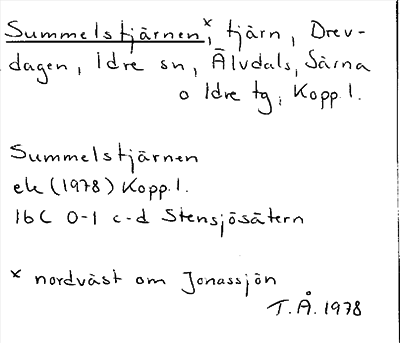 Summelstjärnen*, tjärn, Drev-
dagen, Idre sn, Älvdals, Särna
o Idre tg, Kopp.l.
Summelstjärnen
ek (1978) Kopp.l.
16C 0-1 c-d Stensjösätern
* nordväst om Jonassjön
T.Å. 1978